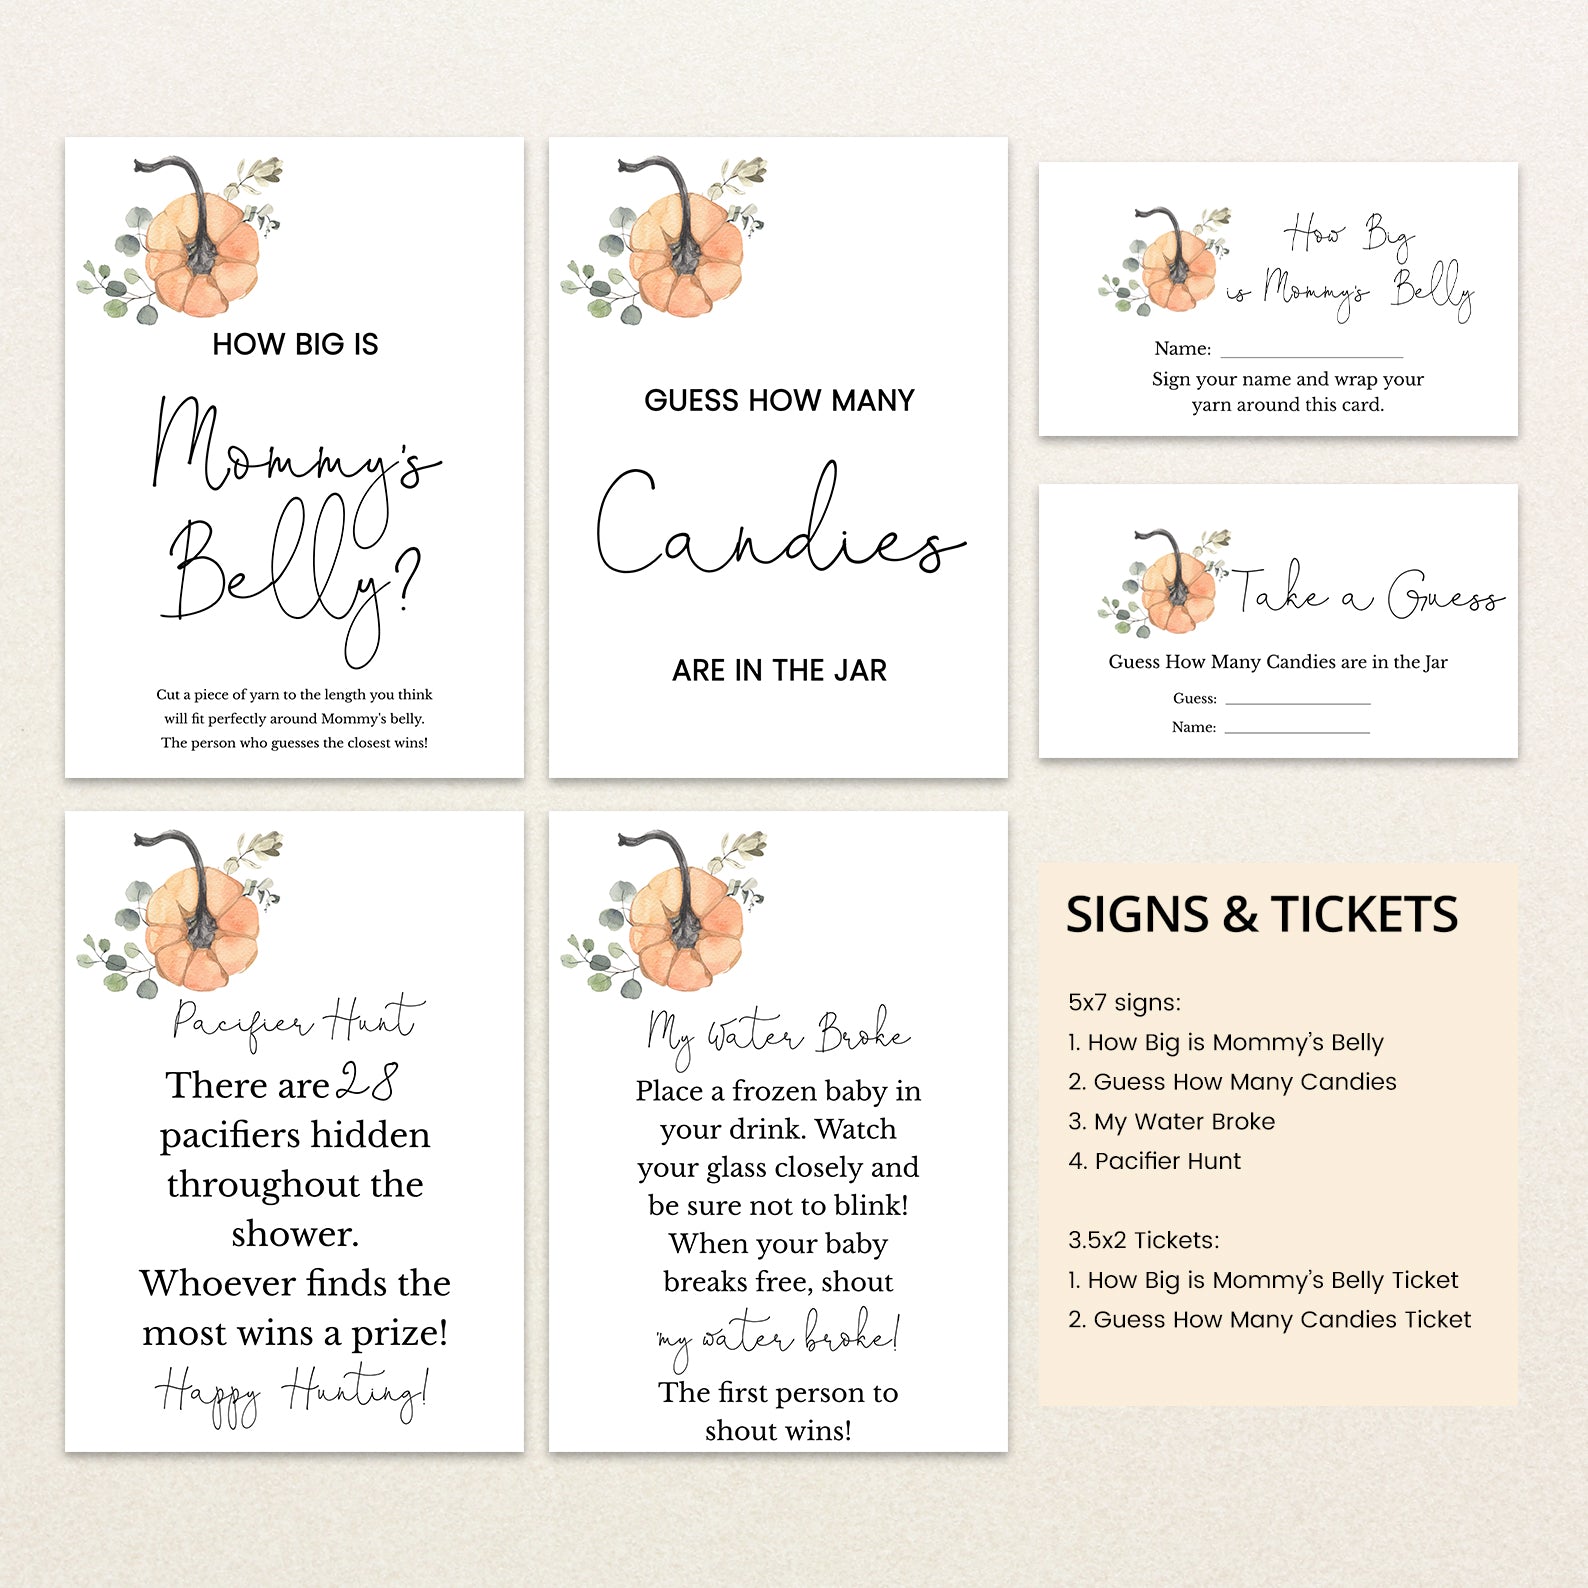 HOW BIG IS
Mommy's
Belly?
Cut a piece of yarn to the length you think
will fit perfectly around Mommy's belly.
The person who guesses the closest wins!
GUESS HOW MANY
Candies
ARE IN THE JAR
How Big
is Mommy's Belly
Name: ____________________
Sign your name and wrap your
yarn around this card.
Take a Guess
Guess How Many Candies are in the Jar
Guess: ____________________
Name: ____________________
Pacifier Hunt
There are 28
pacifiers hidden
throughout the
shower.
Whoever finds the
most wins a prize!
Happy Hunting!
My Water Broke
Place a frozen baby in
your drink. Watch
your glass closely and
be sure not to blink!
When your baby
breaks free, shout
'my water broke!
The first person to
shout wins!
SIGNS & TICKETS
5x7 signs:
1. How Big is Mommy's Belly
2. Guess How Many Candies
3. My Water Broke
4. Pacifier Hunt
3.5x2 Tickets:
1. How Big is Mommy's Belly Ticket
2. Guess How Many Candies Ticket